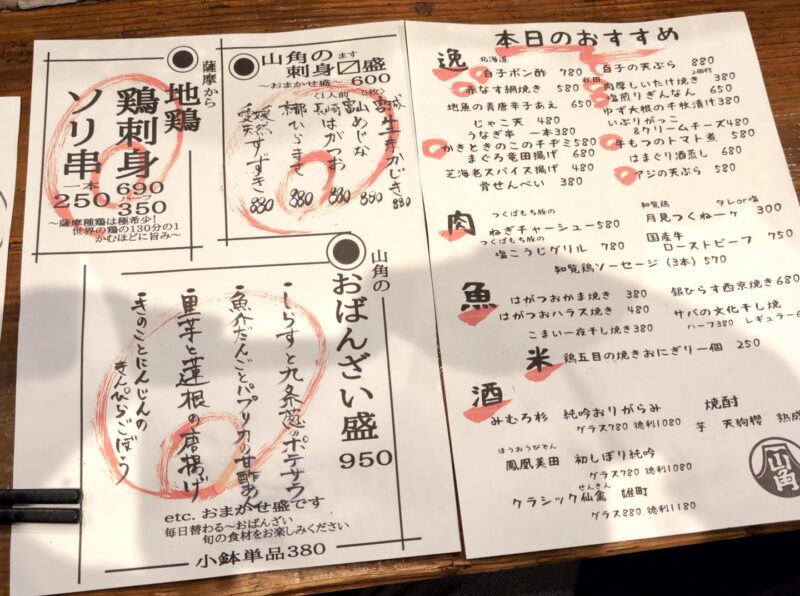 薩摩から
地鶏
鶏刺身
690
ハーフ
350
ソリ串
一本
250
～薩摩種鶏は極希少!
世界の鶏の130分の1
かむほどに旨み～
山角の
刺身〼盛
ます
～おまかせ盛～ 600
(1人前 6枚)
880
長崎はがつお 880
880
880
愛媛 すずき 880
山角の
おばんざい盛
950
しらすと九条葱のポテサラ
魚介だんごとパプリカの甘酢あん
里芋と蓮根の唐揚げ
きのことにんじんの
きんぴらごぼう
etc. おまかせ盛です
毎日替わる～おばんざい
旬の食材をお楽しみください
小鉢単品380
本日のおすすめ
逸
北海道
白子ポン酢 780
白子の天ぷら 880
赤なす網焼き 580
秋田
肉厚しいたけ焼き 2個付 380
地魚の青唐辛子あえ 650
塩煎りぎんなん 650
じゃこ天 480
ゆず大根の千枚漬け380
うなぎ串 一本380
いぶりがっこ
&クリームチーズ480
かきときのこのチヂミ580
牛もつのトマト煮 580
まぐろ竜田揚げ 680
はまぐり酒蒸し 680
芝海老スパイス揚げ 480
アジの天ぷら 580
骨せんべい 380
肉
つくばもち豚の
ねぎチャーシュー580
知覧鶏 タレor塩
月見つくね一ケ 300
つくばもち豚の
塩こうじグリル 780
国産牛
ローストビーフ 750
知覧鶏ソーセージ(3本)570
魚
はがつおかま焼き 380
銀ひらす西京焼き680
はがつおハラス焼き 480
サバの文化干し焼
ハーフ380 レギュラー6
こまい一夜干し焼き380
米
鶏五目の焼きおにぎり一個 250
酒
みむろ杉 純吟おりがらみ
グラス780 徳利1080
焼酎
芋 天狗櫻 熟成
ほうおうびでん
鳳凰美田 初しぼり純吟
グラス780 徳利1080
せんきん
クラシック仙禽 雄町
グラス880 徳利1180
山角